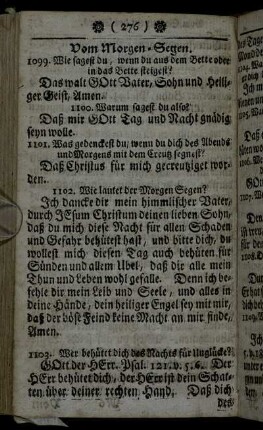 ( 276 )
Vom Morgen-Segen.
1099. Wie sagest du, wenn du aus dem Bette oder
in das Bette steigest?
Das walt GOtt Vater, Sohn und Heili-
ger Geist, Amen.
1100. Warum sagest du also?
Daß mir GOtt Tag und Nacht gnädig
seyn wolle.
1101. Was gedenckest du, wenn du dich des Abends
und Morgens mit dem Creutz segnest?
Daß Christus für mich gecreutziget wor-
den.
1102. Wie lautet der Morgen Segen?
Ich dancke dir mein himmlischer Vater,
durch JEsum Christum deinen lieben Sohn,
daß du mich diese Nacht für allen Schaden
und Gefahr behütest hast, und bitte dich, du
wollest mich diesen Tag auch behüten für
Sünden und allem Übel, daß dir alle mein
Thun und Leben wohl gefalle. Denn ich be-
fehle dir mein Leib und Seele, und alles in
deine Hände, dein heiliger Engel sey mit mir,
daß der böse Feind keine Macht an mir finde,
Amen.
1103. Wer behütet dich des Nachts für Unglück?
GOtt der HErr. Psal. 121. v. 5. 6. Der
HErr behütet dich, der HErr ist dein Schat-
ten über deiner rechten Hand, Daß dich